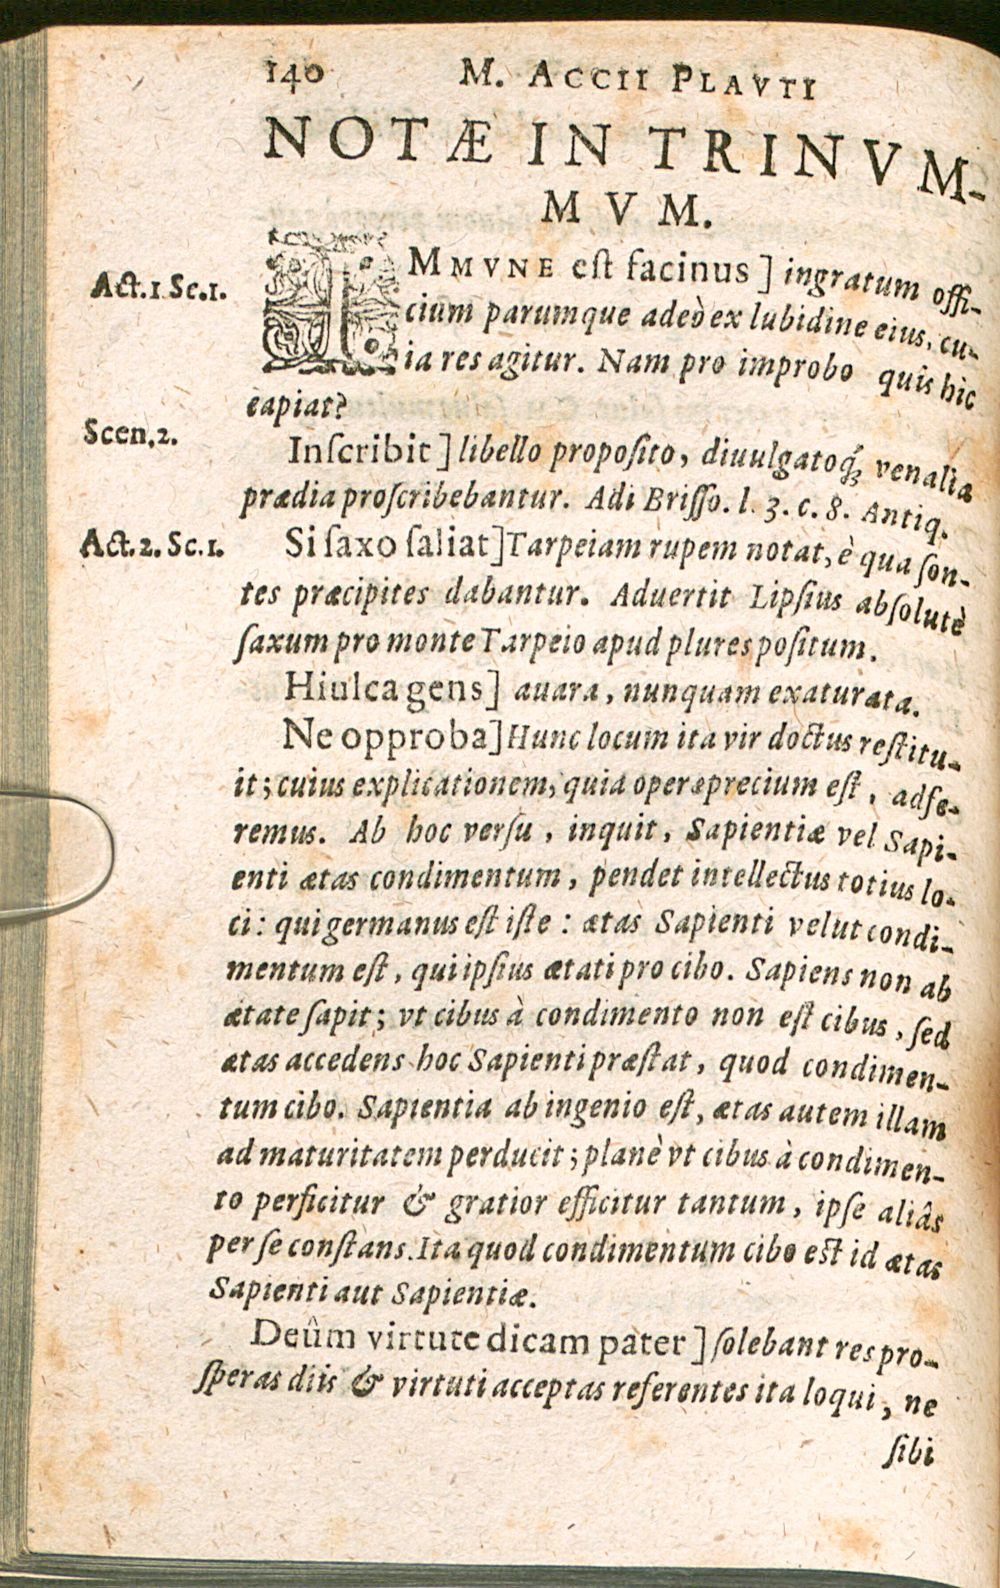 140 M. ACCII PLAVTI
NOTÆ IN TRINVM-
MVM.
Act. 1 Sc. 1.
IMMVNE est facinus] ingratum offi-
cium parumque adeò ex lubidine eius, cu-
ia res agitur. Nam pro improbo quis hic
eapiat?
Scen. 2.
Inſcribit] libello propoſito, diuulgatoq́; venalia
prædia proſcribebantur. Adi Briſſo. l. 3. c. 8. Antiq.
Act. 2. Sc. 1.
Si ſaxo ſaliat] Tarpeiam rupem notat, è qua ſon-
tes præcipites dabantur. Aduertit Lipſius abſolutè
ſaxum pro monte Tarpeio apud plures poſitum.
Hiulca gens] auara, nunquam exaturata.
Ne opproba] Hunc locum ita vir doctus reſtitu-
it; cuius explicationem, quia operæprecium eſt, adfe-
remus. Ab hoc verſu, inquit, Sapientiæ vel Sapi-
enti ætas condimentum, pendet intellectus totius lo-
ci: qui germanus eſt iſte: ætas Sapienti velut condi-
mentum eſt, qui ipſius ætati pro cibo. Sapiens non ab
ætate ſapit; vt cibus à condimento non eſt cibus, ſed
ætas accedens hoc Sapienti præſtat, quod condimen-
tum cibo. Sapientia ab ingenio eſt, ætas autem illam
ad maturitatem perducit; planè vt cibus à condimen-
to perficitur & gratior efficitur tantum, ipſe aliâs
per ſe conſtans. Ita quod condimentum cibo eſt id ætas
Sapienti aut Sapientiæ.
Deûm virtute dicam pater] ſolebant res pro-
ſperas diis & virtuti acceptas referentes ita loqui, ne
ſibi